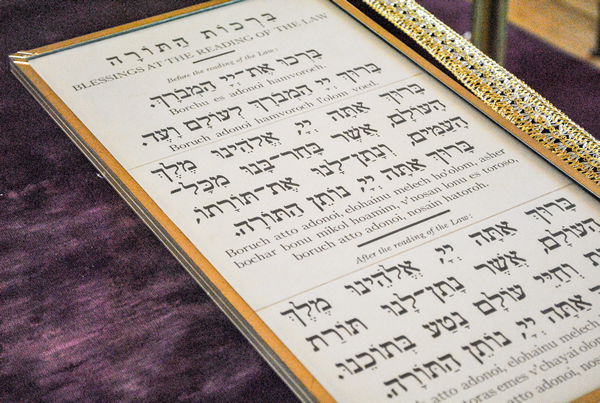 בִּרְכוֹת הַתּוֹרָה
BLESSINGS AT THE READING OF THE LAW
Before the reading of the Law:
בָּרְכוּ אֶת־יְיָ הַמְבֹרָךְ.
Borchu es adonoi hamvoroch.
בָּרוּךְ יְיָ הַמְבֹרָךְ לְעוֹלָם וָעֶד.
Boruch adonoi hamvoroch l'olom voed.
בָּרוּךְ אַתָּה יְיָ, אֱלֹהֵינוּ מֶלֶךְ
הָעוֹלָם, אֲשֶׁר בָּחַר־בָּנוּ מִכָּל־
הָעַמִּים, וְנָתַן־לָנוּ אֶת־תּוֹרָתוֹ,
בָּרוּךְ אַתָּה יְיָ, נוֹתֵן הַתּוֹרָה.
Boruch atto adonoi, elohainu melech ho'olom, asher
bochar bonu mikol hoamim, v'nosan lonu es toroso,
boruch atto adonoi, nosain hatoroh.
After the reading of the Law:
בָּרוּךְ אַתָּה יְיָ, אֱלֹהֵינוּ מֶלֶךְ
הָעוֹלָם, אֲשֶׁר נָתַן־לָנוּ תּוֹרַת
וְחַיֵּי עוֹלָם נָטַע בְּתוֹכֵנוּ.
אַתָּה יְיָ, נוֹתֵן הַתּוֹרָה.
atto adonoi, elohainu melech
toras emes v'chayai olom